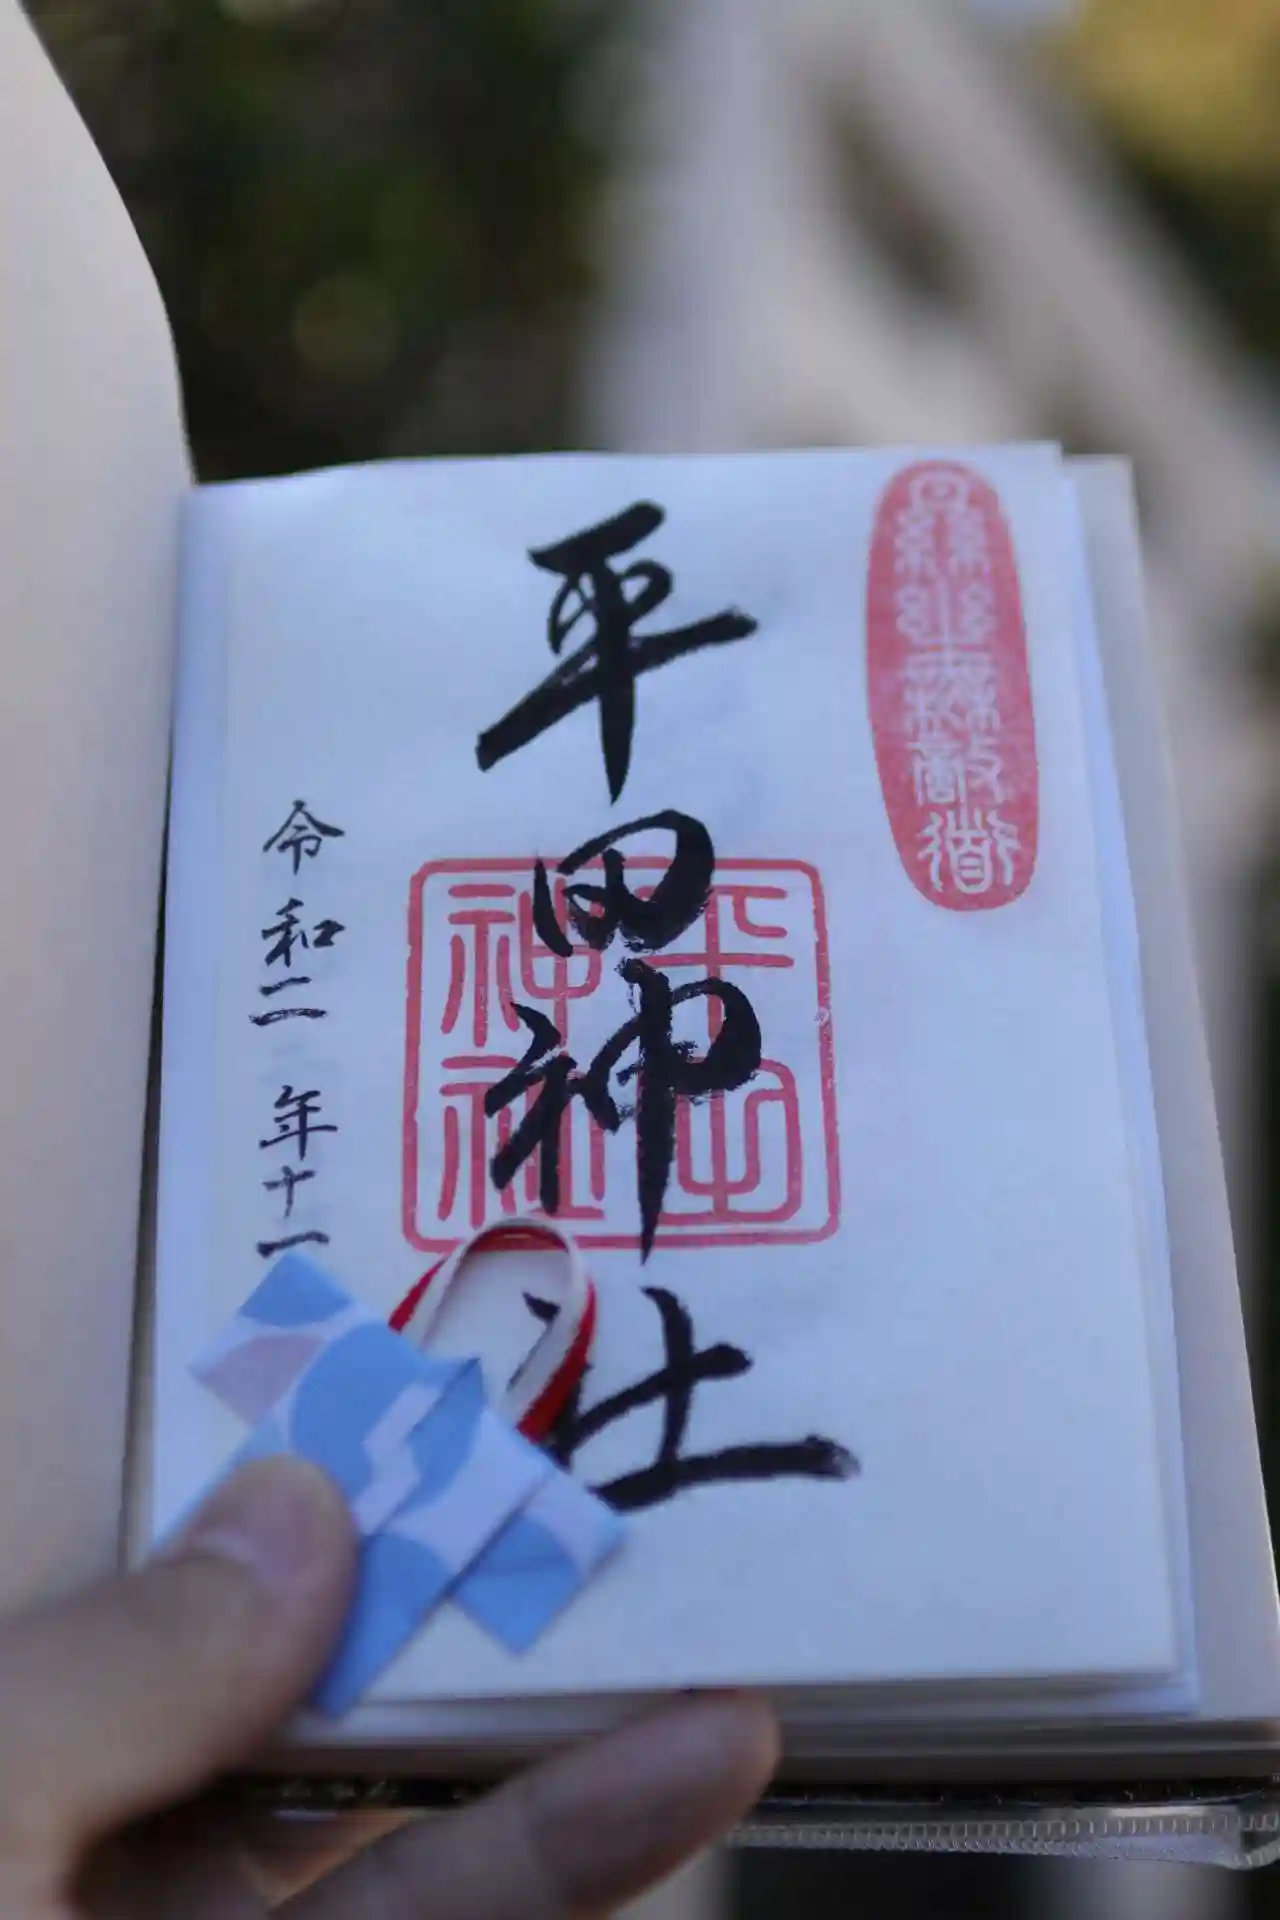 平田神社
平田
神社
令和二年十一